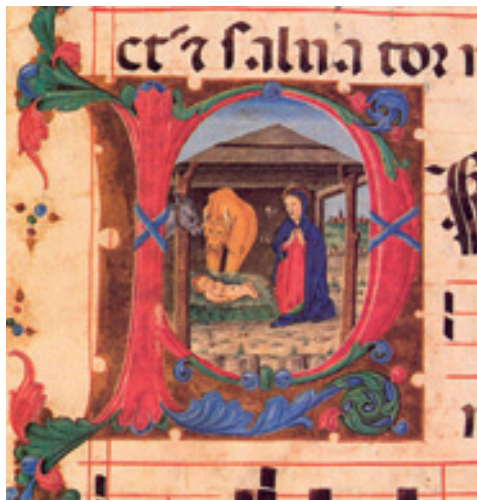 ct' ⁊ salua tor
P